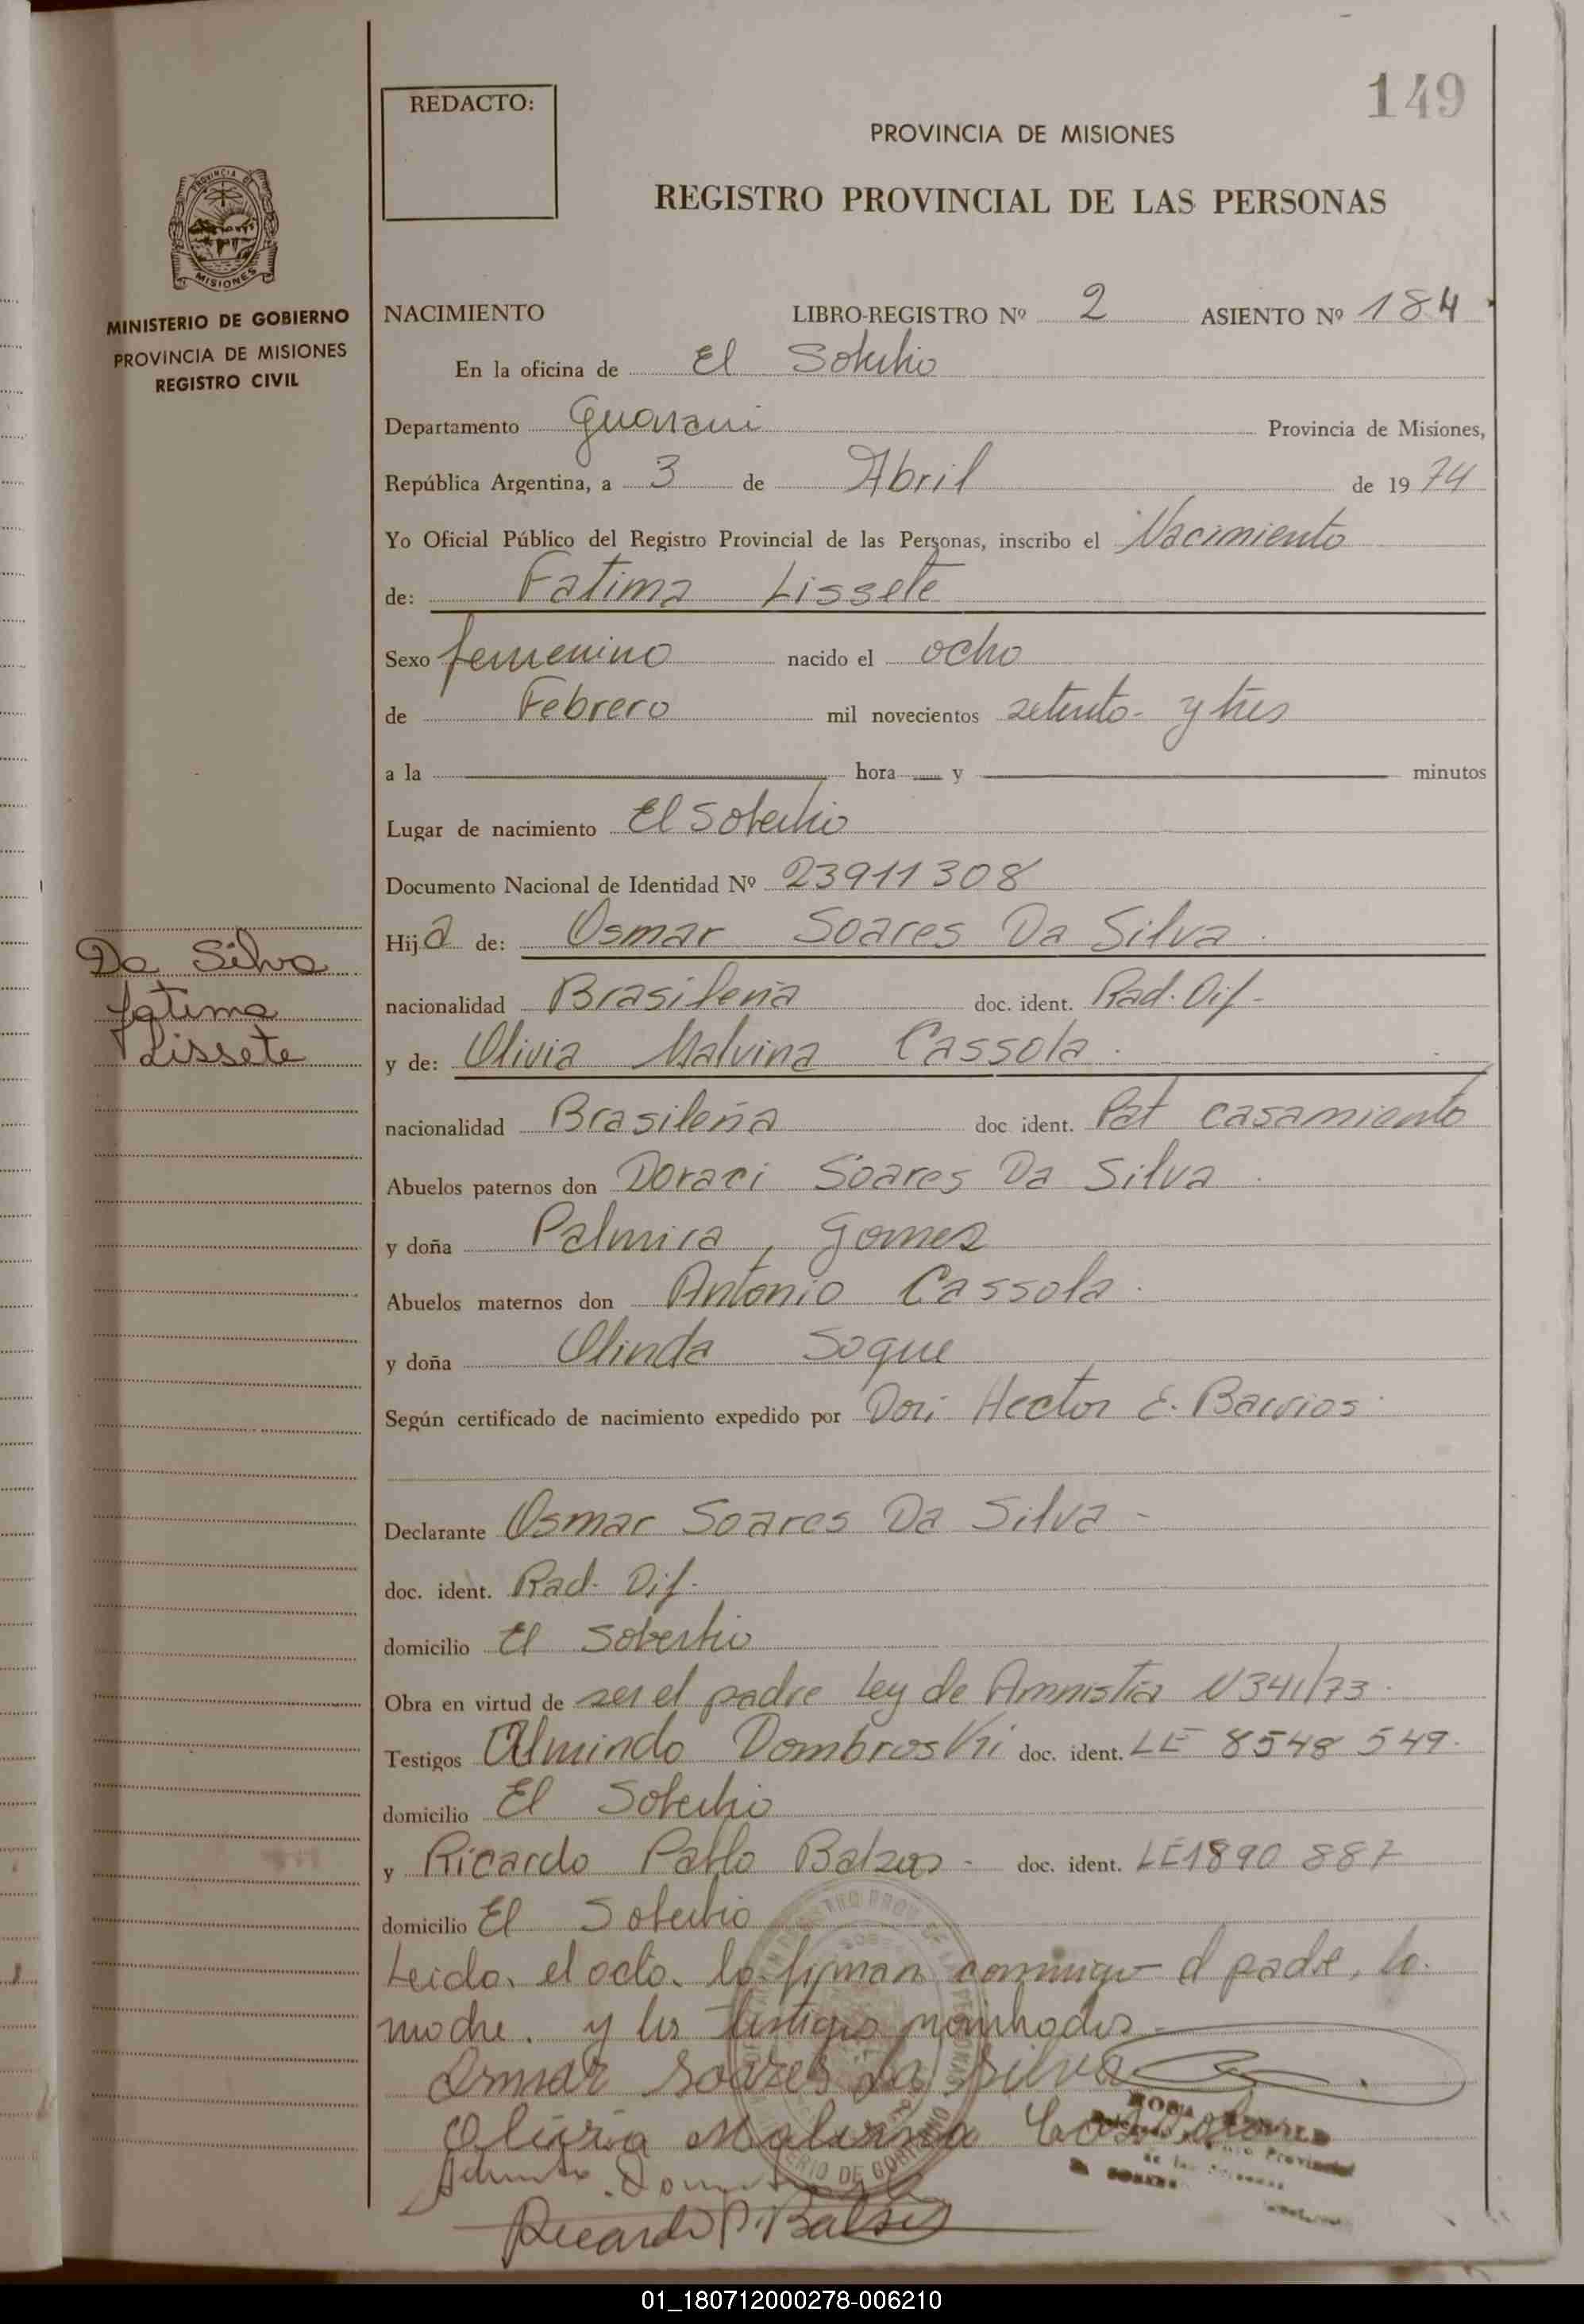 149
REDACTO:
PROVINCIA DE MISIONES
REGISTRO PROVINCIAL DE LAS PERSONAS
PROVINCIA DE MISIONES
MINISTERIO DE GOBIERNO
PROVINCIA DE MISIONES
REGISTRO CIVIL
NACIMIENTO LIBRO-REGISTRO Nº 2 ASIENTO Nº 184
En la oficina de El Soberbio
Departamento Guarani Provincia de Misiones,
República Argentina, a 3 de Abril de 1974
Yo Oficial Público del Registro Provincial de las Personas, inscribo el Nacimiento
de: Fatima Lissete
Sexo femenino nacido el ocho
de Febrero mil novecientos setenta y tres
a la hora y minutos
Lugar de nacimiento El Soberbio
Documento Nacional de Identidad Nº 23911308
Hija de: Osmar Soares Da Silva
Da Silva
Fatima
Lissete
nacionalidad Brasileña doc. ident. Rad. Dif.
y de: Olivia Malvina Cassola
nacionalidad Brasileña doc ident. Pat casamiento
Abuelos paternos don Doraci Soares Da Silva
y doña Palmira, Gomez
Abuelos maternos don Antonio Cassola
y doña Olinda Soque
Según certificado de nacimiento expedido por Hector E. Barrios
Declarante Osmar Soares Da Silva
doc. ident. Rad. Dif.
domicilio El Soberbio
Obra en virtud de ser el padre Ley de Amnistia N 341/73
Testigos Dombroski doc. ident. LE 8548 549
domicilio El Soberbio
y Ricardo Pablo doc. ident. LE 1890 887
domicilio El Soberbio
Leida el acta la firman conmigo el padre, la
madre y los testigos nombrados
Osmar Soares da Silva
Olivia Malvina Cassola
Ricardo P.
01_180712000278-006210